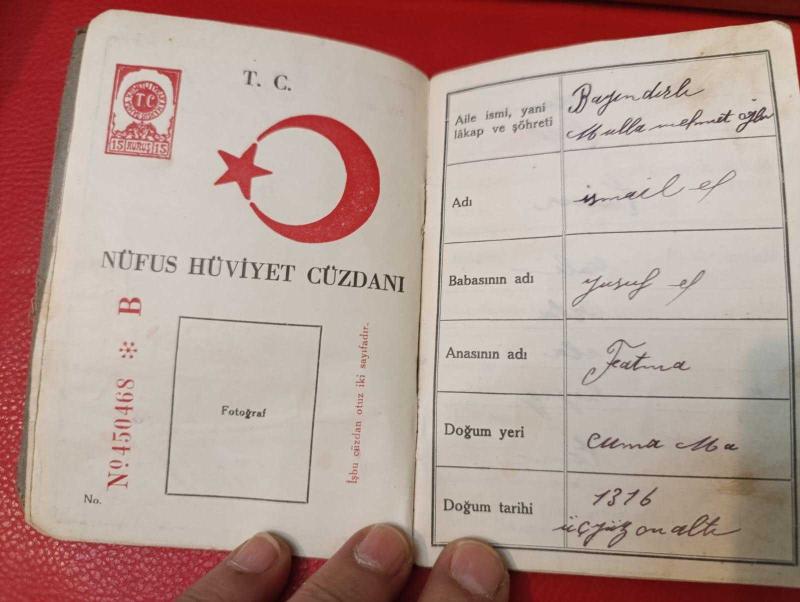 T. C.
T C
15 KURUŞ 15
NÜFUS HÜVİYET CÜZDANI
No 450468 * B
Fotoğraf
İşbu cüzdan otuz iki sayıfadır.
No.
Aile ismi, yani
lâkap ve şöhreti
Bayındırlı
Mulla mehmet oğlu
Adı
ismail el
Babasının adı
yusuf el
Anasının adı
Featma
Doğum yeri
cuma Ma
Doğum tarihi
1316
üçyüz on altı